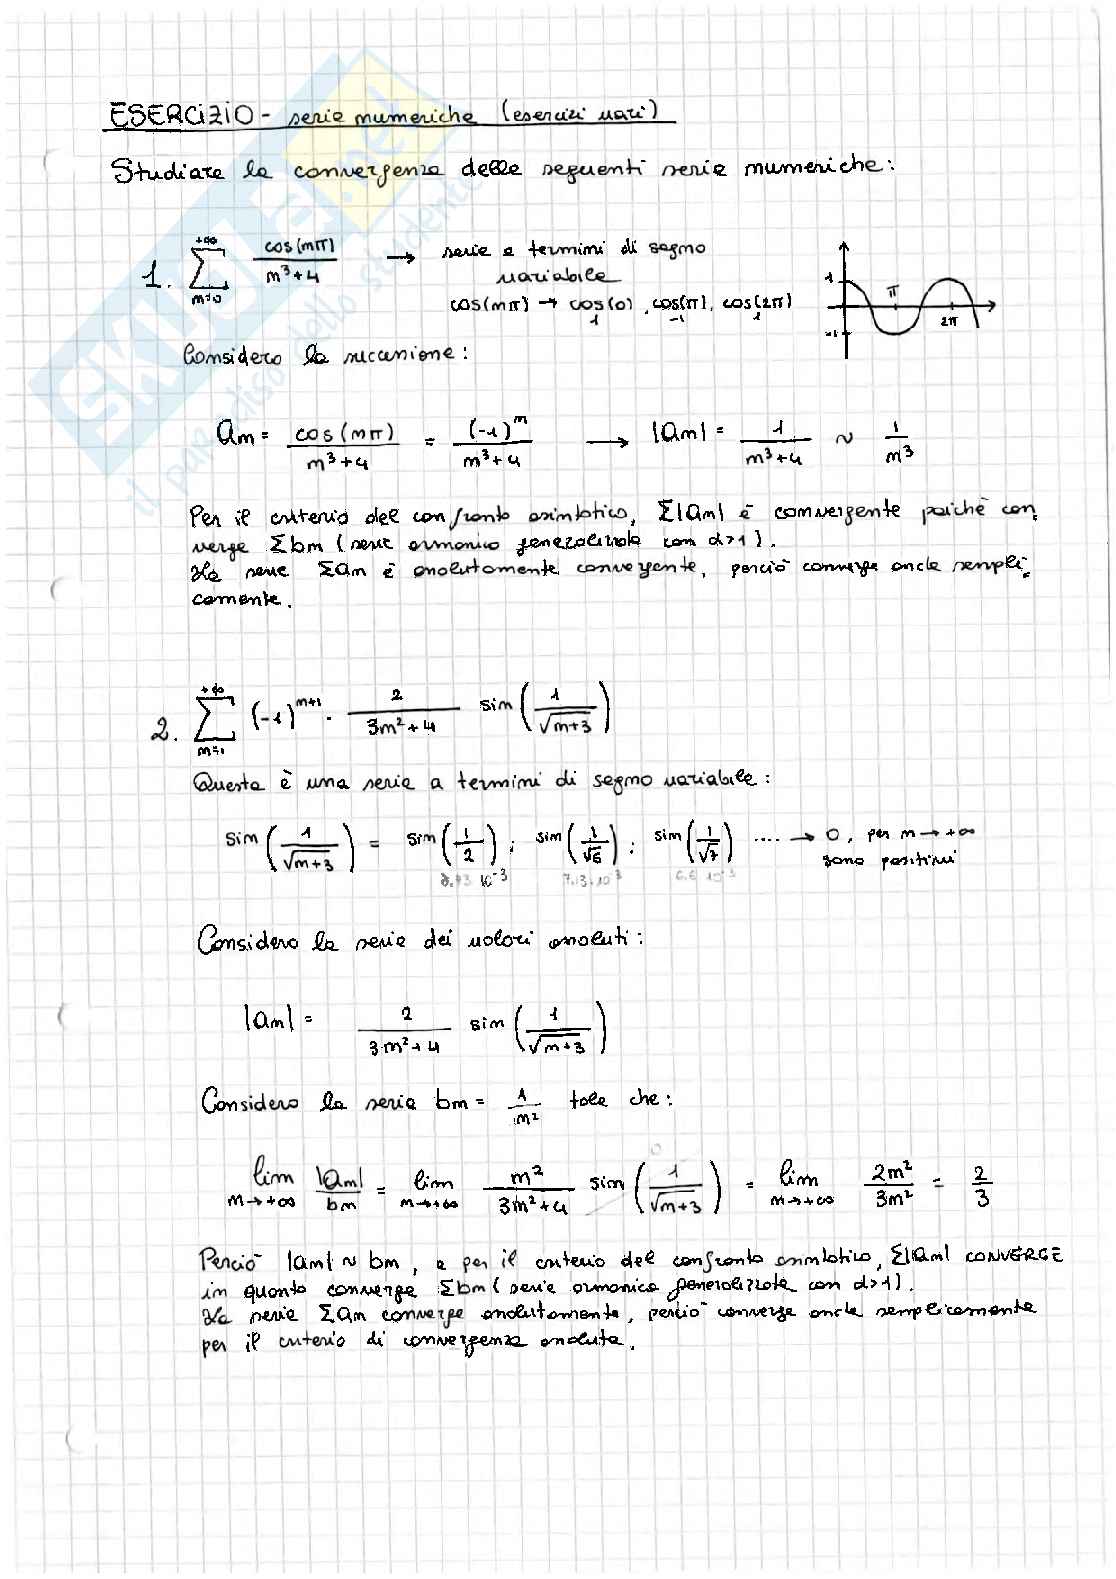 ESERCIZIO - serie numeriche (esercizi vari)
Studiare la convergenza delle seguenti serie numeriche:
1. +∞ ∑ n=0 cos(nπ) / n³+4 → serie a termini di segno
variabile
cos(nπ) → cos(0), cos(π), cos(2π)
1 -1 1
1 -1 π 2π
Considero la successione:
an = cos(nπ) / n³+4 = (-1)ⁿ / n³+4 → |an| = 1 / n³+4 ~ 1 / n³
Per il criterio del confronto asintotico, Σ|an| è convergente poiché con-
verge Σbn (serie armonica generalizzata con α>1).
La serie Σan è assolutamente convergente, perciò converge anche sempli-
cemente.
2. +∞ ∑ n=1 (-1)ⁿ⁺¹ · 2 / 3n²+4 sin(1 / √n+3)
Questa è una serie a termini di segno variabile:
sin(1 / √n+3) = sin(1/2); sin(1/√6); sin(1/√7) .... → 0, per n→+∞
sono positivi
8.73 10⁻³ 7.13·10⁻³ 6.6 10⁻³
Considero la serie dei valori assoluti:
|an| = 2 / 3n²+4 sin(1 / √n+3)
Considero la serie bn = 1 / n² tale che:
lim n→+∞ |an| / bn = lim n→+∞ n² / 3n²+4 sin(1 / √n+3) = lim n→+∞ 2n² / 3n² = 2 / 3
0
Perciò |an| ~ bn, e per il criterio del confronto asintotico, Σ|an| CONVERGE
in quanto converge Σbn (serie armonica generalizzata con α>1).
La serie Σan converge assolutamente, perciò converge anche semplicemente
per il criterio di convergenza assoluta.
SKUOLA.net
il paradiso dello studente